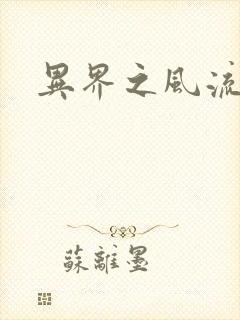 異界之風流
蘇離墨